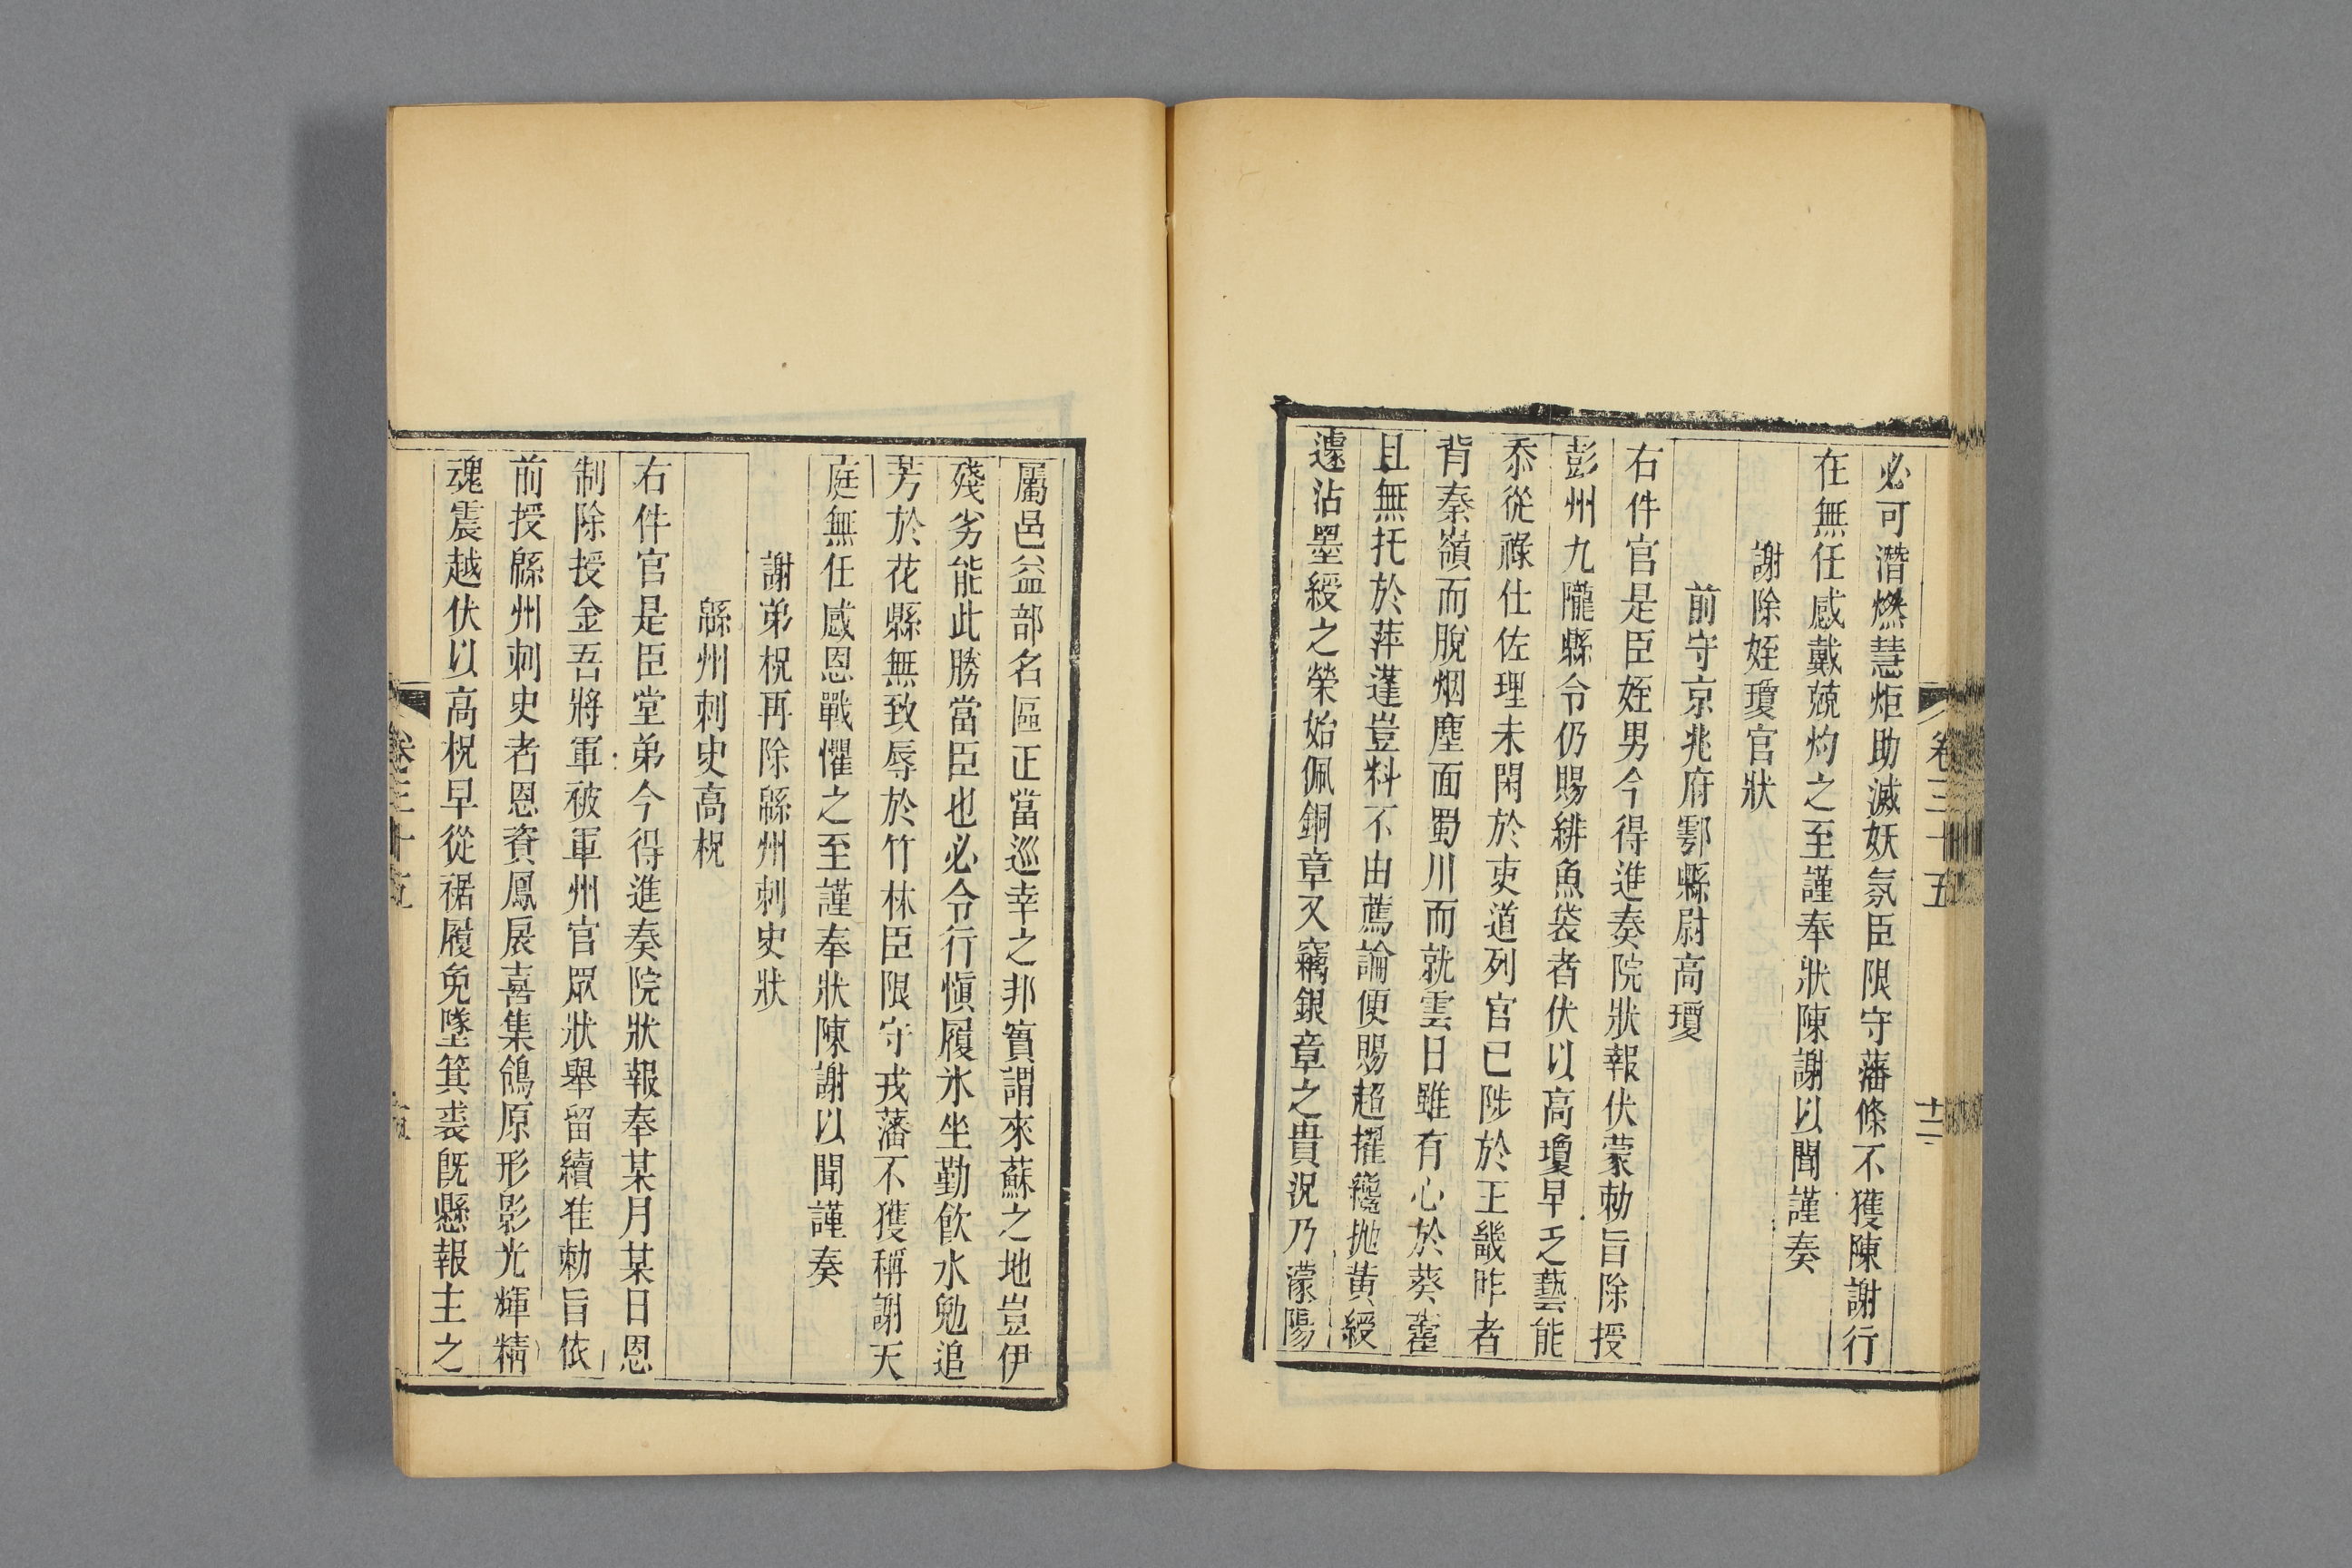 必可潛燃慧炬助滅妖氛臣限守藩條不獲陳謝行
在無任感戴兢灼之至謹奉狀陳謝以聞謹奏
謝除姪瓊官狀
前守京兆府鄠縣尉高瓊
右件官是臣姪男今得進奏院狀報伏蒙勅旨除授
彭州九隴縣令仍賜緋魚袋者伏以高瓊早乏藝能
忝從祿仕佐理未閑於吏道列官已陟於王畿昨者
背秦嶺而脫烟塵面蜀川而就雲日雖有心於葵藿
且無托於萍蓬豈料不由薦論便賜超擢纔抛黃綬
遽沾墨綬之榮始佩銅章又竊銀章之貴況乃濛陽
卷三十五
十二
屬邑益部名區正當巡幸之邦實謂來蘇之地豈伊
殘劣能此勝當臣也必令行愼履氷坐勤飮水勉追
芳於花縣無致辱於竹林臣限守戎藩不獲稱謝天
庭無任感恩戰懼之至謹奉狀陳謝以聞謹奏
謝弟柷再除緜州刺史狀
緜州刺史高柷
右件官是臣堂弟今得進奏院狀報奉某月某日恩
制除授金吾將軍被軍州官眾狀舉留續准勅旨依
前授緜州刺史者恩資鳳扆喜集鴒原形影光輝精
魂震越伏以高柷早從裾履免墜箕裘旣懸報主之
卷三十五